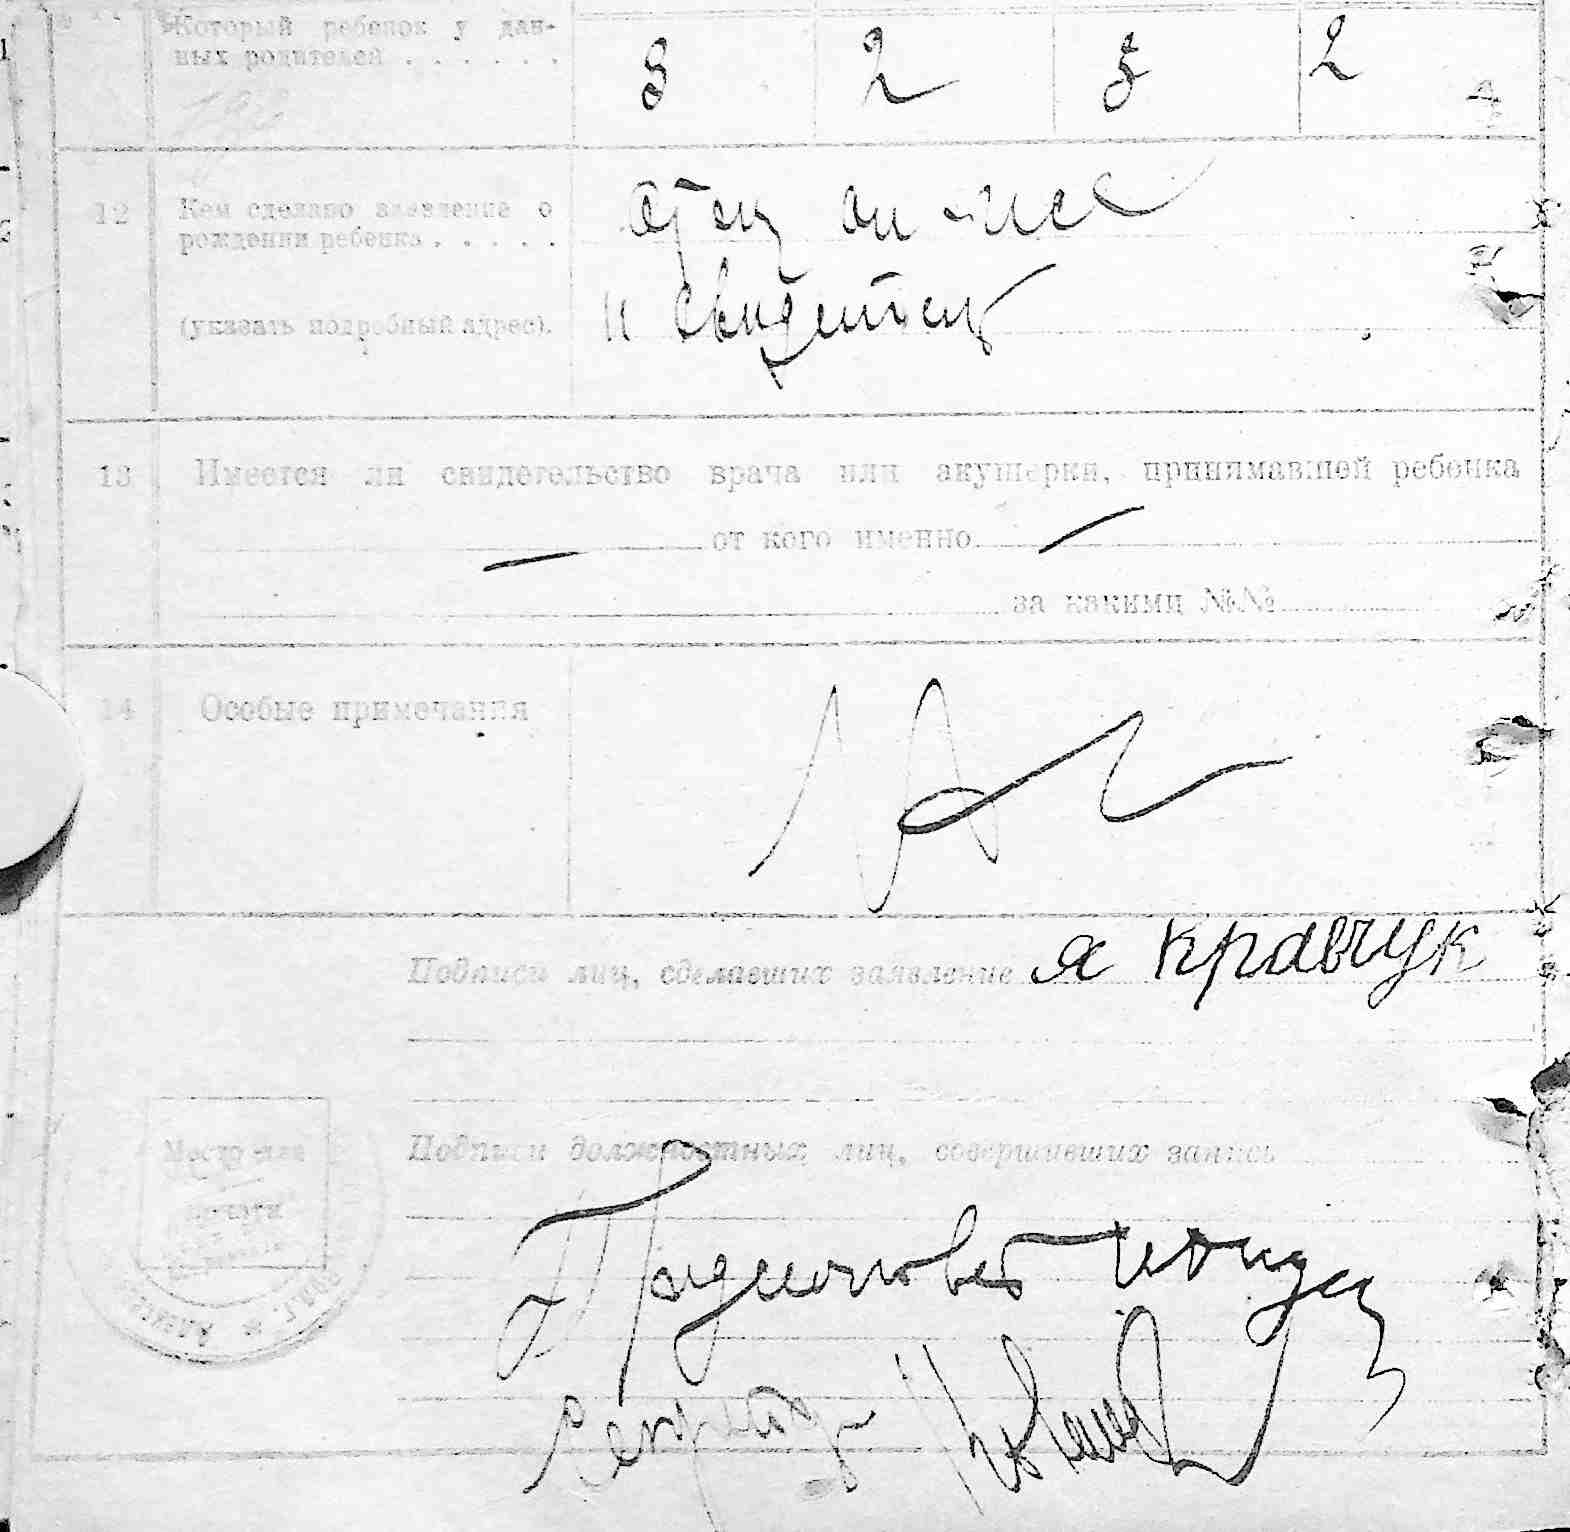 Который ребенок у дан-
ных родителей . . . . . .
3 2 3 2
12 Кем сделано заявление о
рождении ребенка . . . . .
отец
(указать подробный адрес).
и свидетель
13 Имеется ли свидетельство врача или акушерки, принимавшей ребенка
— от кого именно —
за какими №№
14 Особые примечания
Подписи лиц, сделавших заявление я Кравчук
Место для
печати
Подписи должностных лиц, совершивших запись
Секретарь